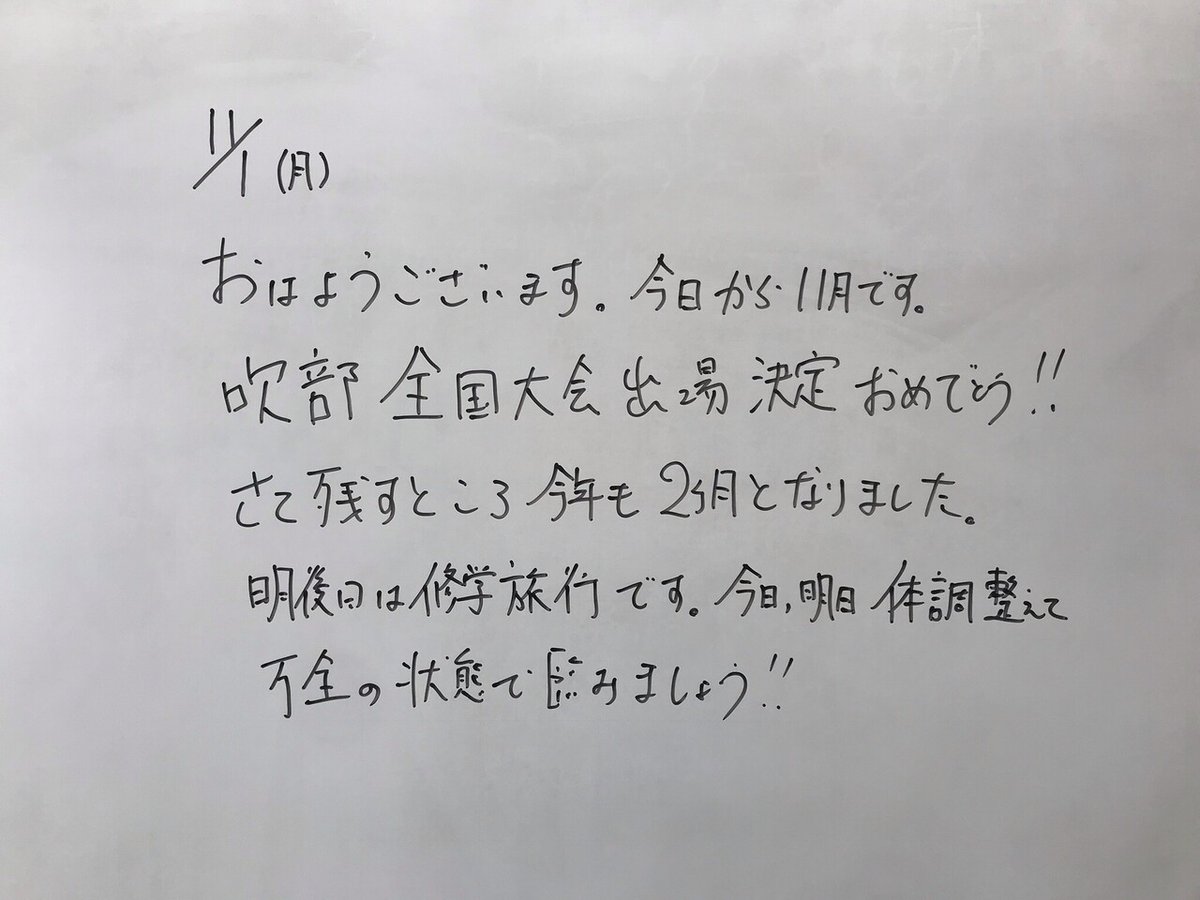 11/1(月)
おはようございます。今日から11月です。
吹部 全国大会 出場 決定 おめでとう!!
さて残すところ今年も2ヶ月となりました。
明後日は修学旅行です。今日,明日 体調整えて
万全の状態で臨みましょう!!